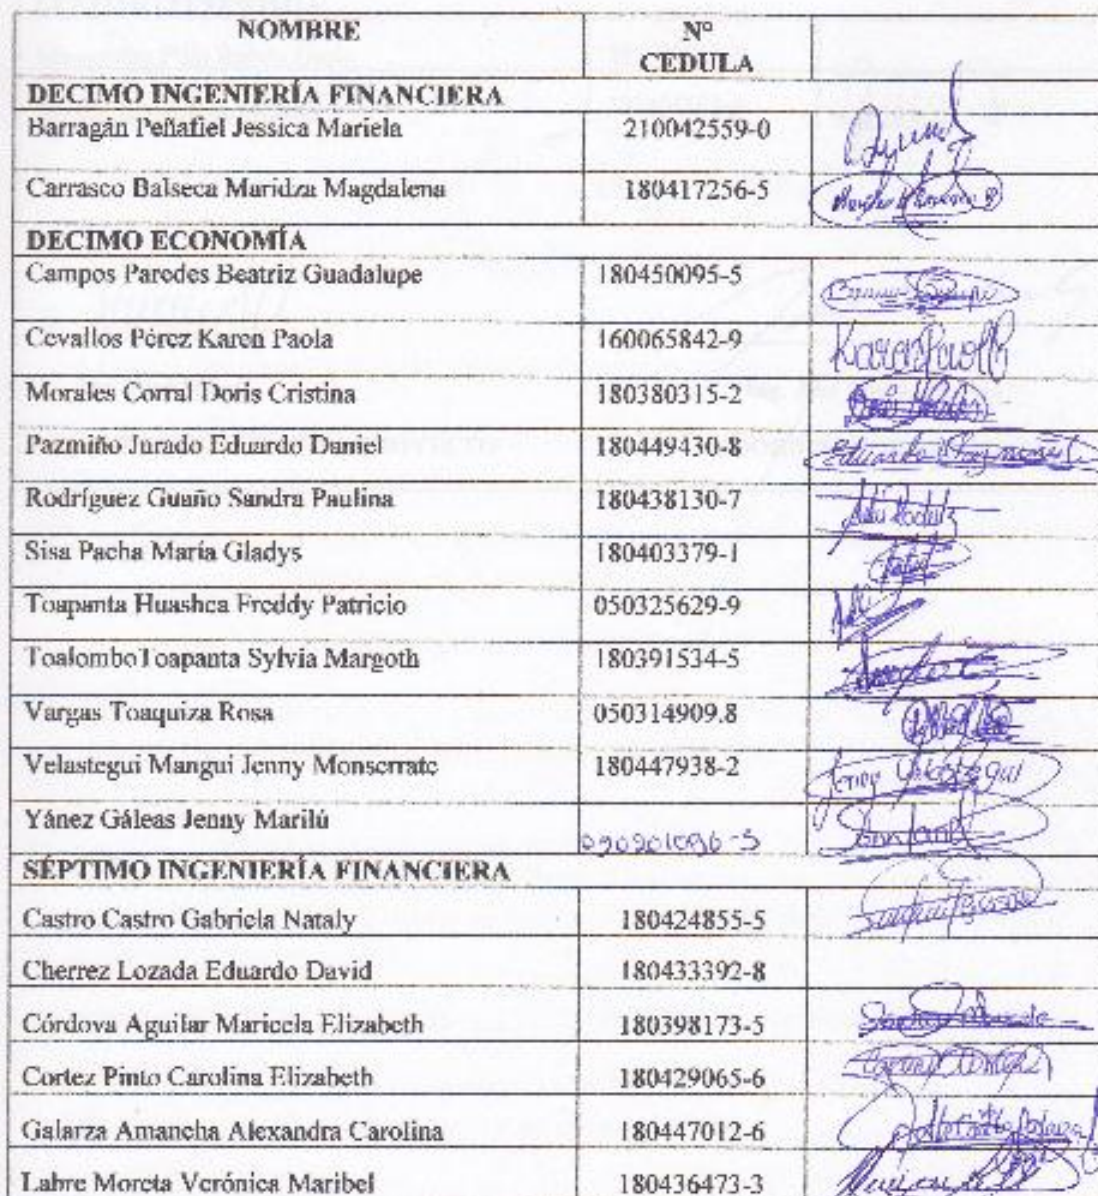 NOMBRE Nº
CEDULA
DECIMO INGENIERÍA FINANCIERA
Barragán Peñafiel Jessica Mariela 210042559-0
Carrasco Balseca Maridza Magdalena 180417256-5
DECIMO ECONOMÍA
Campos Paredes Beatriz Guadalupe 180450095-5
Cevallos Pérez Karen Paola 160065842-9
Morales Corral Doris Cristina 180380315-2
Pazmiño Jurado Eduardo Daniel 180449430-8
Rodríguez Guaño Sandra Paulina 180438130-7
Sisa Pacha María Gladys 180403379-1
Toapanta Huashca Freddy Patricio 050325629-9
ToalomboToapanta Sylvia Margoth 180391534-5
Vargas Toaquiza Rosa 050314909.8
Velastegui Mangui Jenny Monserrate 180447938-2
Yánez Gáleas Jenny Marilú
SÉPTIMO INGENIERÍA FINANCIERA
Castro Castro Gabriela Nataly 180424855-5
Cherrez Lozada Eduardo David 180433392-8
Córdova Aguilar Maricela Elizabeth 180398173-5
Cortez Pinto Carolina Elizabeth 180429065-6
Galarza Amancha Alexandra Carolina 180447012-6
Labre Moreta Verónica Maribel 180436473-3